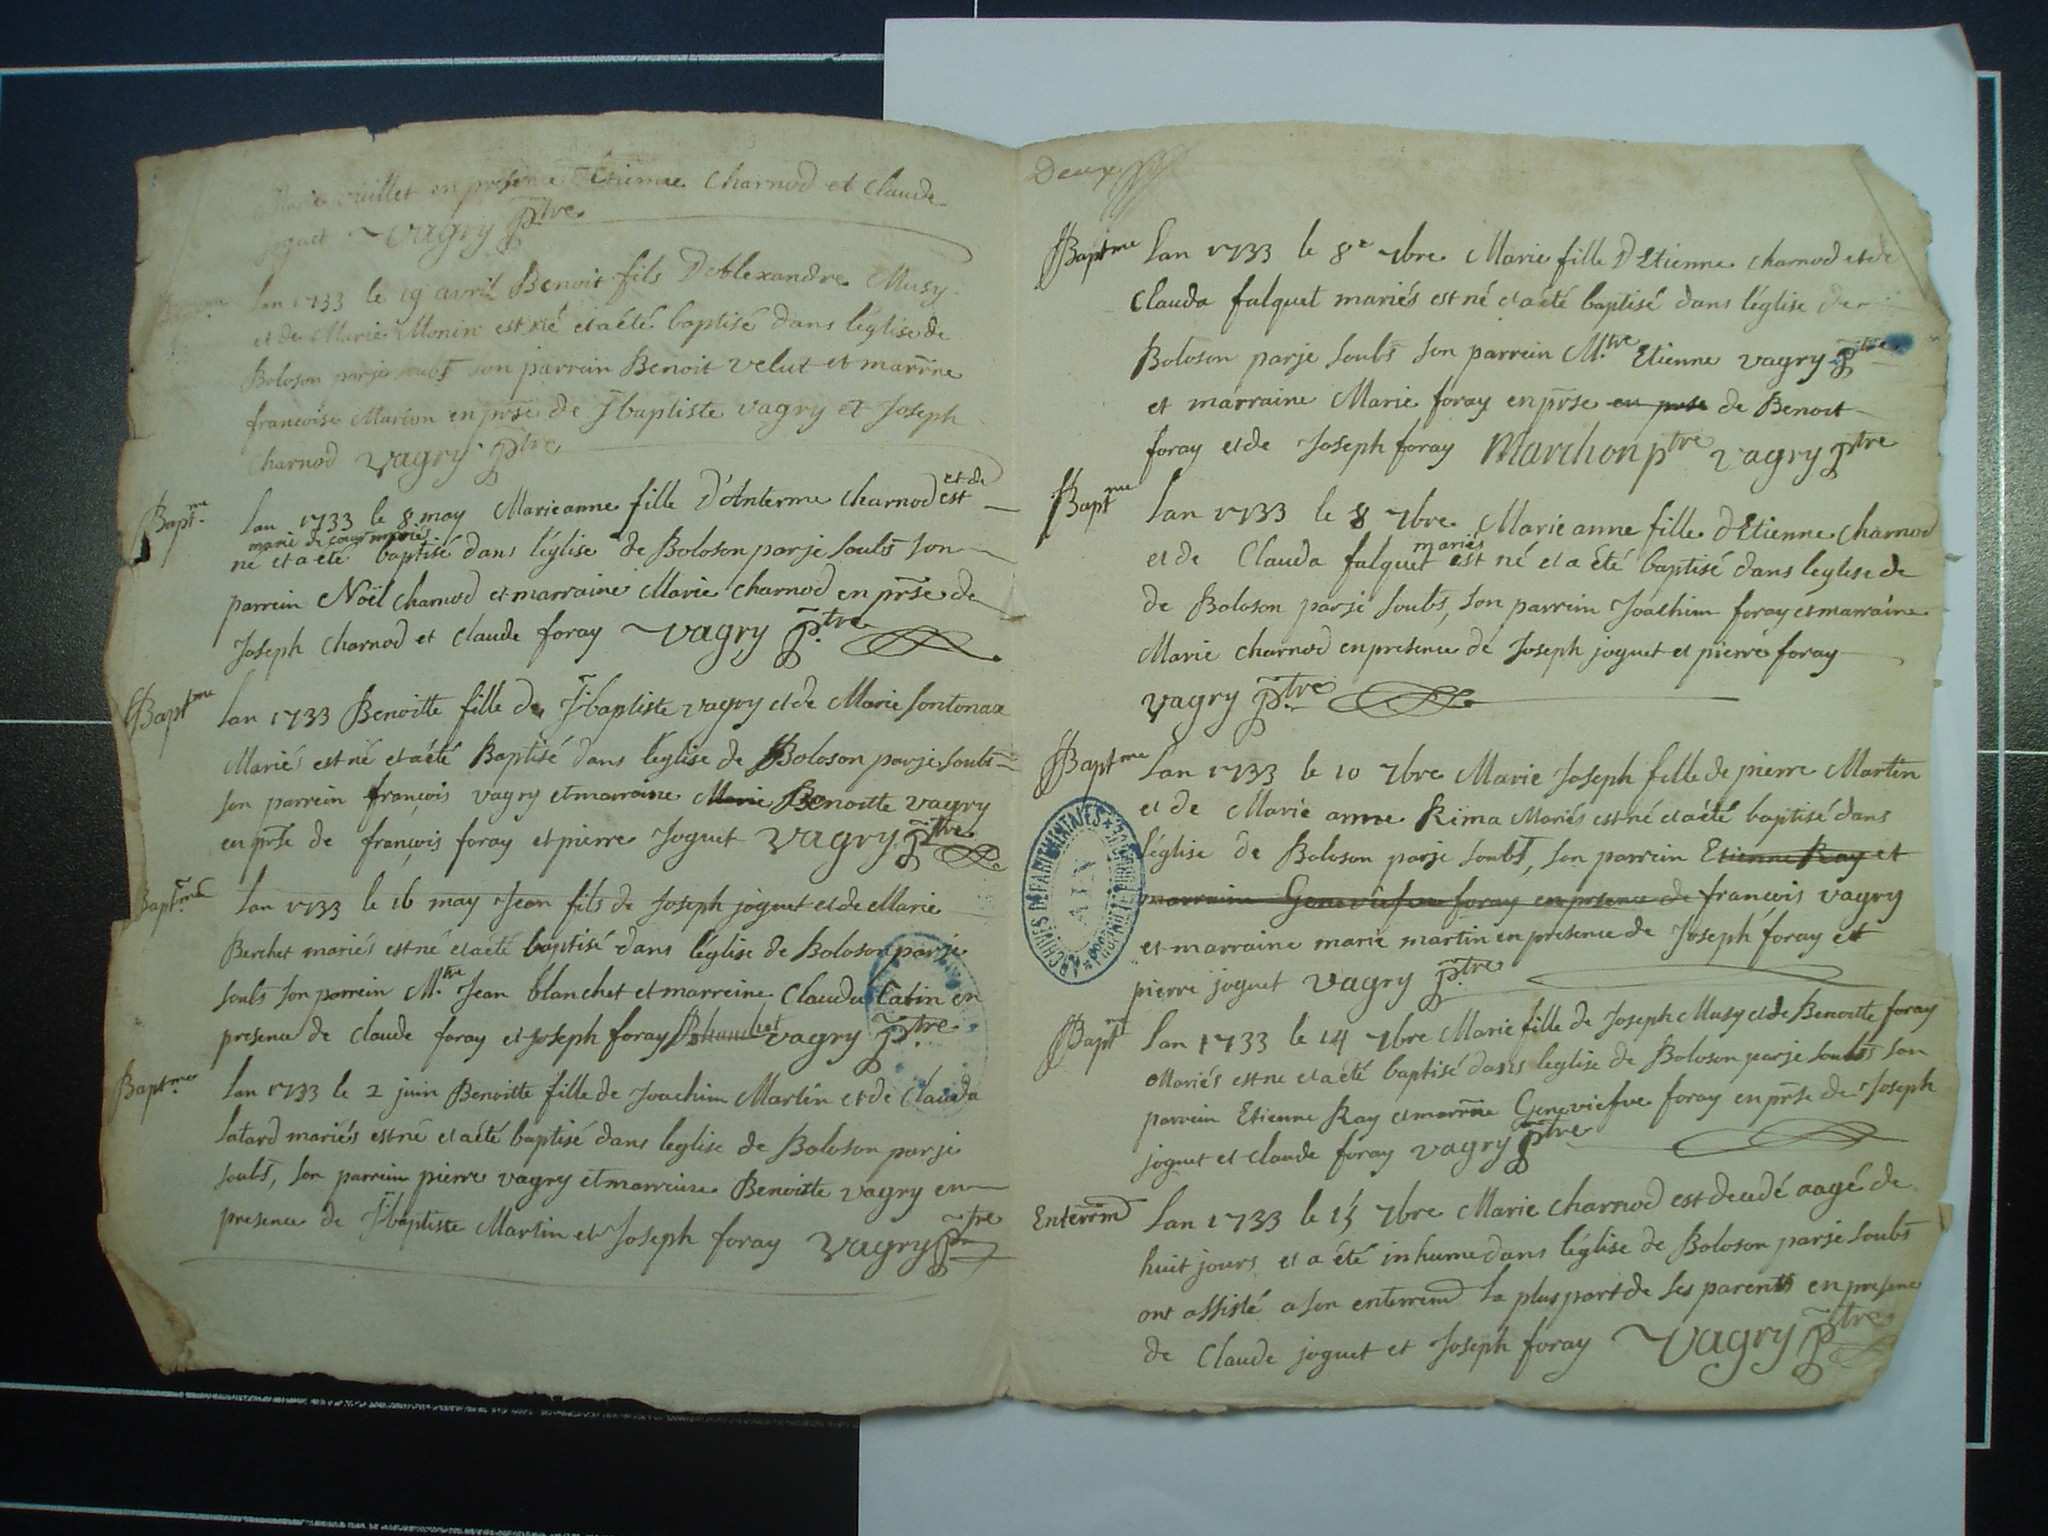 Marie vuillet en presence d'Etienne Charnod et Claude
joguet Vagry Ptre
Lan 1733 le 19 avril Benoit fils D'Alexandre Musy
et de Marie Monin est né et a été baptisé dans l'église de
Boloson par je soubs son parrein Benoit velut et marrne
francoise Marion en prse de J baptiste vagry et Joseph
Charnod vagry ptre
Baptme Lan 1733 le 8 may Marieanne fille D'Anterme Charnod et de
mariés est
né et a été baptisé dans l'église de Boloson par je soubs son
parrein Noël Charnod et marraine Marie Charnod en prse de
Joseph Charnod et Claude foray Vagry Ptre
Baptme Lan 1733 Benoitte fille de J baptiste vagry et de Marie sontonax
Mariés est né et a été Baptisé dans l'église de Boloson par je soubs
son parrein françois vagry et marraine Marie Benoitte vagry
en prse de françois foray et pierre Joguet Vagry Ptre
Baptme Lan 1733 le 16 may Jean fils de Joseph joguet et de Marie
Berchet mariés est né et a été baptisé dans l'église de Boloson par je
soubs son parrein Mtre Jean blanchet et marreine Clauda Catin en
presence de Claude foray et Joseph foray Blanchet vagry Ptre
Baptme Lan 1733 le 2 juin Benoitte fille de Joachim Martin et de Clauda
Latard mariés est né et a été baptisé dans leglise de Boloson par je
soubs, son parrein pierre vagry et marreine Benoitte vagry en
presence de J baptiste Martin et Joseph foray Vagry Ptre
Deux
Baptme Lan 1733 le 8e 7bre Marie fille D'Etienne Charnod et de
Clauda falquet mariés est né et a été baptisé dans l'église de
Boloson par je soubs son parrein Mtre Etienne vagry Ptre
et marraine Marie foray en prse en prse de Benoit
foray et de Joseph foray Marchon ptre vagry ptre
Baptme Lan 1733 le 8 7bre Marie anne fille d'Etienne Charnod
et de Clauda falquet mariés est né et a été baptisé dans leglise de
de Boloson par je soubs, son parrein Joachim foray et marraine
Marie Charnod en presence de Joseph joguet et pierre foray
vagry Ptre
Baptme Lan 1733 le 10 7bre Marie Joseph fille de pierre Martin
et de Marie anne Rima Mariés est né et a été baptisé dans
l'église de Boloson par je soubs, son parrein Etienne Ray et
marraine Geneviefve foray en presence de francois vagry
et marraine marie martin en presence de Joseph foray et
pierre joguet vagry Ptre
ARCHIVES DÉPARTEMENTALES
AIN
Baptme Lan 1733 le 14 7bre Marie fille de Joseph Musy et de Benoitte foray
Mariés est né et a été baptisé dans leglise de Boloson par je soubs son
parrein Etienne Ray et marrne Geneviefve foray en prse de Joseph
joguet et Claude foray vagry Ptre
Enterremd Lan 1733 le 15 7bre Marie Charnod est decedé aagé de
huit jours et a été inhume dans l'église de Boloson par je soubs
ont assisté a son enterremd la pluspart de ses parents en presence
de Claude joguet et Joseph foray Vagry Ptre